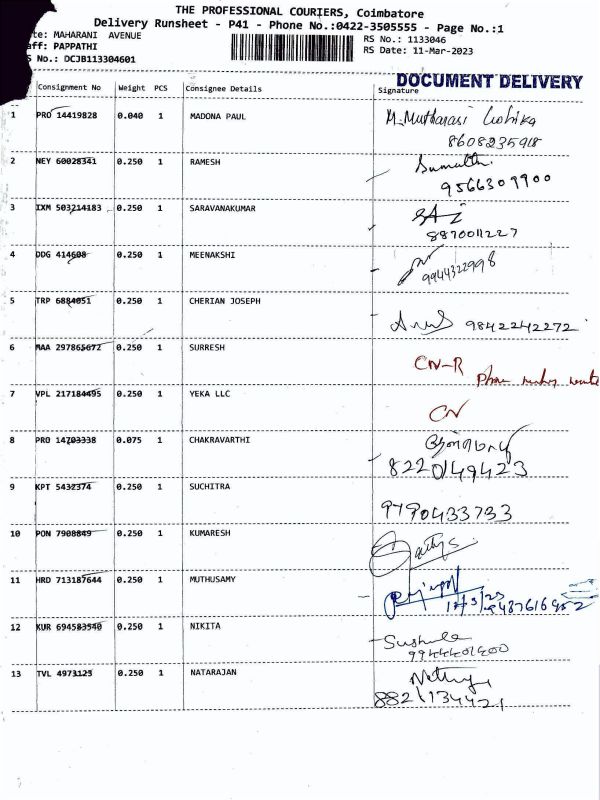 THE PROFESSIONAL COURIERS, Coimbatore
Delivery Runsheet - P41 - Phone No.:0422-3505555 - Page No.:1
te: MAHARANI AVENUE
aff: PAPPATHI
S No.: DCJB113304601
RS No.: 1133046
RS Date: 11-Mar-2023
DOCUMENT DELIVERY
Consignment No Weight PCS Consignee Details Signature
1 PRO 14419828 0.040 1 MADONA PAUL M.Mutharasi
8608235918
2 NEY 60028341 0.250 1 RAMESH
9566309900
3 IXM 503214183 0.250 1 SARAVANAKUMAR
8870011227
4 DDG 414608 0.250 1 MEENAKSHI
9944322998
5 TRP 6884051 0.250 1 CHERIAN JOSEPH 9842242272
6 MAA 297865672 0.250 1 SURRESH CN-R
7 VPL 217184495 0.250 1 YEKA LLC
CN
8 PRO 14703338 0.075 1 CHAKRAVARTHI
8220149423
9 KPT 5432374 0.250 1 SUCHITRA
9790433733
10 PON 7908849 0.250 1 KUMARESH
11 HRD 713187644 0.250 1 MUTHUSAMY
12 KUR 694583540 0.250 1 NIKITA Sushula
13 TVL 4973123 0.250 1 NATARAJAN
8821134421